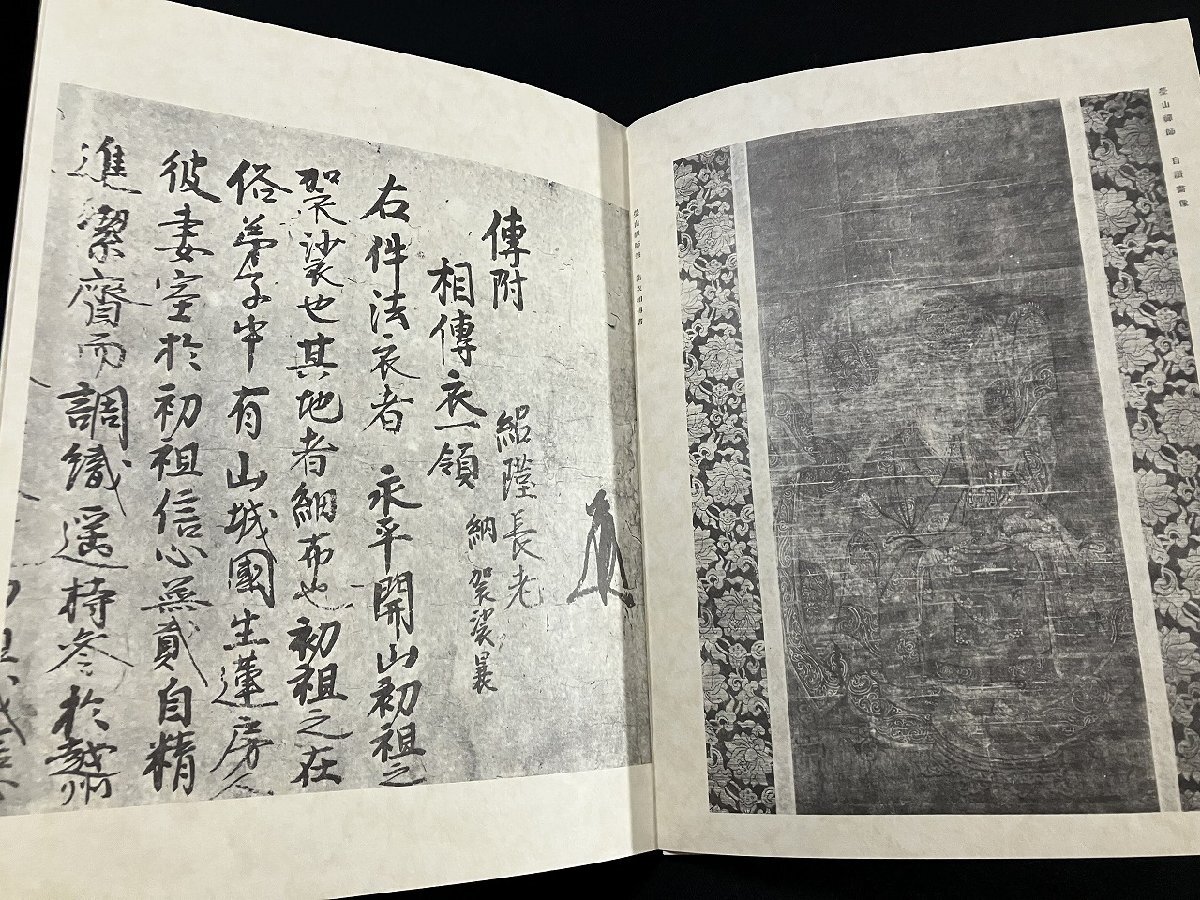 瑩山禪師 自讚畫像
傳附
紹瑾長老
相傳衣一領
納袈裟曩
右件法衣者 永平開山初祖之
袈裟也其地者細布也初祖之在
俗弟子中有山城國生蓮房
彼妻室於初祖信心無貳自精
進潔齋而調織遥持參於越州